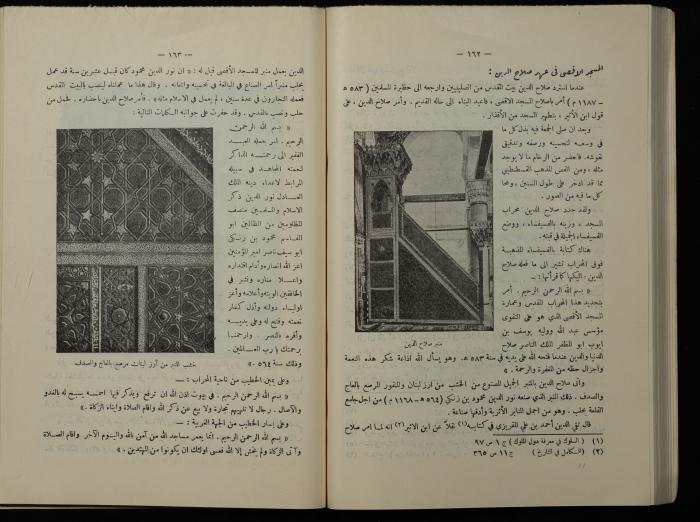 — ١٦٢ —
المسجد الاقصى فى عهد صلاح الدين :
عندما استرد صلاح الدين بيت المقدس من الصليبيين وارجعه الى حظيرة المسلمين (٥٨٣ هـ
— ١١٨٧ م) أمر باصلاح المسجد الاقصى ، فاعيد البناء الى حاله القديم . وأمر صلاح الدين ، على
قول ابن الأثير ، بتطهير المسجد من الأقذار .
وبعد ان صلى الجمعة فيه بذل كل ما
فى وسعه لتحسينه ورصفه وتدقيق
نقوشه . فاحضر من الرخام ما لا يوجد
مثله ، ومن الفص المذهب القسطنطينى
مما قد ادخر على طول السنين ، ومحا
كل ما فيه من الصور .
ولقد جدد صلاح الدين محراب
المسجد ، وزينه بالفسيفساء ، ووضع
الفسيفساء الجميلة فى قبته .
هناك كتابة بالفسيفساء المذهبة
فوق المحراب تشير الى ما فعله صلاح
الدين . اليكها كما قرأتها : —
« بسم الله الرحمن الرحيم . أمر
بتجديد هذا المحراب المقدس وعمارة
المسجد الأقصى الذي هو على التقوى
مؤسس عبد الله ووليه يوسف بن
ايوب ابو المظفر الملك الناصر صلاح
منبر صلاح الدين
الدنيا والدين عندما فتحه الله على يديه فى سنة ٥٨٣ هـ. وهو يسأل الله اذاعة شكر هذه النعمة
واجزال حظه من المغفرة والرحمة . »
وأتى صلاح الدين بالمنبر الجميل المصنوع من الخشب من ارز لبنان والمنقور المرصع بالعاج
والصدف . ذلك المنبر الذي صنعه نور الدين محمود بن زنكي (٥٦٤ هـ — ١١٦٨ م) من اجل جامع
القلعة بحلب . وهو من اجمل المنابر الأثرية وأدقها صناعة .
قال تقي الدين أحمد بن علي المقريزي فى كتابه(١) نقلاً عن ابن الاثير(٢) انه لما امر صلاح
(١) « السلوك في معرفة دول الملوك » ج ١ ص ٩٧
(٢) « الكامل في التاريخ » ج ١١ ص ٣٦٥
— ١٦٣ —
الدين بعمل منبر للمسجد الأقصى قيل له : « ان نور الدين محمود كان قبل عشرين سنة قد عمل
بحلب منبراً أمر الصناع في المبالغة في تحسينه واتقانه . وقال هذا ما عملناه لينصب بالبيت المقدس
فعمله النجارون في عدة سنين ، لم يعمل في الاسلام مثله » . فأمر صلاح الدين باحضاره . فحمل من
حلب ونصب بالقدس . وقد حفرت على جوانبه الكلمات التالية :
« بسم الله الرحمن
الرحيم . امر بعمله العبد
الفقير الى رحمته الشاكر
لنعمته المجاهد في سبيله
المرابط لاعداء دينه الملك
العادل نور الدين ركن
الاسلام والمسلمين منصف
المظلومين من الظالمين ابو
القاسم محمود بن زنكي
بن آق سنقر ناصر امير المؤمنين
اعز الله انصاره وأدام اقتداره
وأعلا مناره ونشر في
الخافقين الويته وأعلامه وأعز
اولياء دولته وأذل كفار
نعمته وفتح له وعلى يديه
وأقر بالنصر وارحمنا
برحمتك يا رب العالمين .
وذلك سنة ٥٦٤ . »
خشب المنبر من أرز لبنان مرصع بالعاج والصدف .
وعلى يمين الخطيب من ناحية المحراب : —
« بسم الله الرحمن الرحيم . في بيوت اذن الله ان ترفع ويذكر فيها اسمه يسبح له بالغدو
والآصال . رجال لا تلهيهم تجارة ولا بيع عن ذكر الله واقام الصلاة وايتاء الزكاة . »
وعلى يسار الخطيب من الجهة الغربية : —
« بسم الله الرحمن الرحيم . انما يعمر مساجد الله من آمن بالله واليوم الآخر واقام الصلاة
وآتى الزكاة ولم يخش إلا الله فعسى اولئك ان يكونوا من المهتدين . »